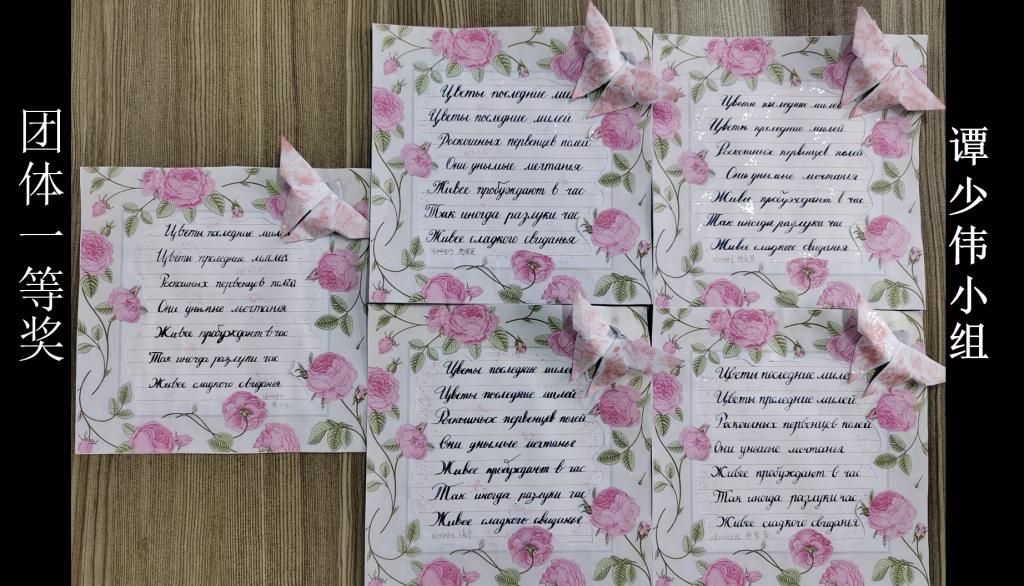 团体一等奖
Цветы последние ми
Цветы последние милей
Роскошных первенцев полей
Они унылые мечтанья
Живее пробуждают в час
Так иногда разлуки час
Живее сладкого свиданья
Цветы последние миле
Цветы прследние милей
Роскошных первенцев полей
Они унылые мечтанья
Живее пробуждают в час
Так иногда разлуки час
Живее сладкого свиданья
Цветы последние мил
Цветы прследние милей
Роскошных первенцев полей
Они унылые мечтанья
Живее пробуждают в час
Так иногда разлуки час
Живее сладкого свиданья
Цветы последние миле
Цветы последние милей
Роскошных первенцев полей
Они унылые мечтанья
Живее пробуждают в час
Так иногда разлуки час
Живее сладкого свиданья
Цветы последние миле
Цветы прследние милей
Роскошных первенцев полей
Они унылые мечтанья
Живее пробуждают в час
Так иногда разлуки час
Живее сладкого свиданья
谭少伟小组